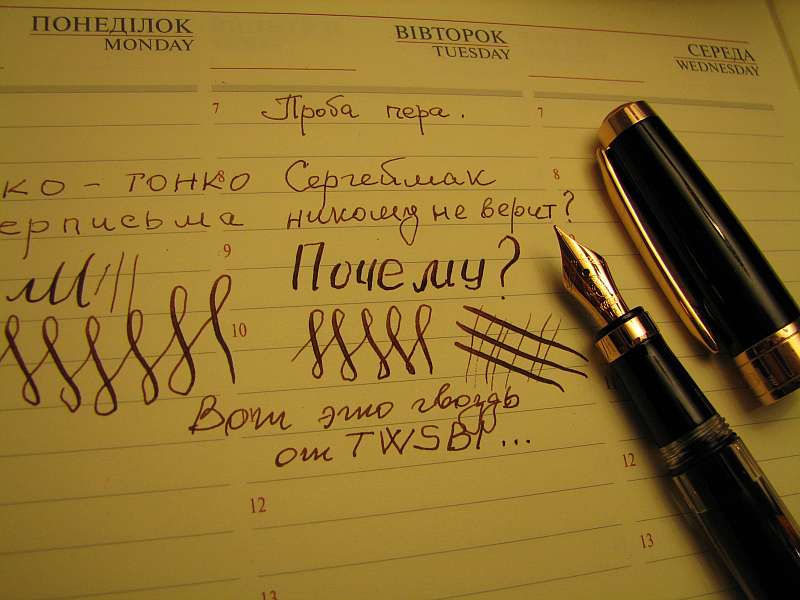 ПОНЕДІЛОК
MONDAY
ВІВТОРОК
TUESDAY
СЕРЕДА
WEDNESDAY
7
Проба пера.
7
ко - тонко
8
Сергеймак
8
ерписьма
никому не верит?
9
Почему?
10
Вот это гвоздь
от TWSBI...
12
12
13
13